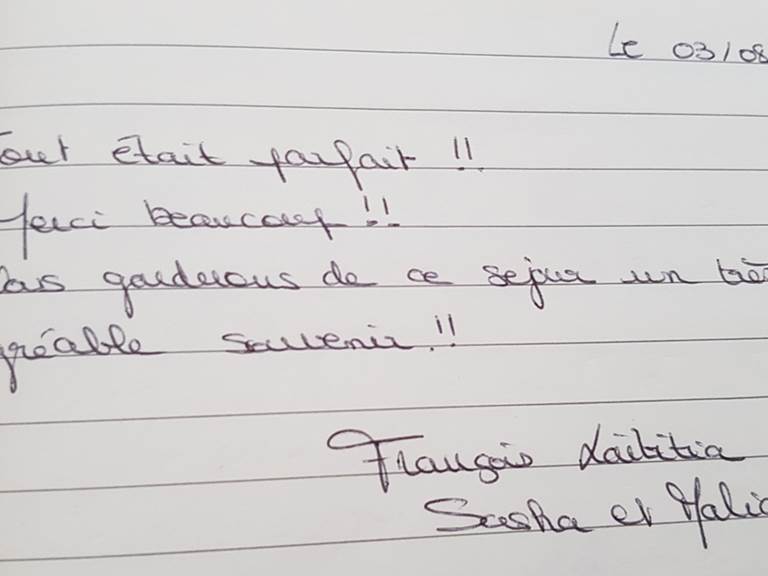 Le 03/08
Tout était parfait !!
Merci beaucoup !!
garderons de ce sejour un très
gréable souvenir !!
François Laëtitia
Sasha et Malic